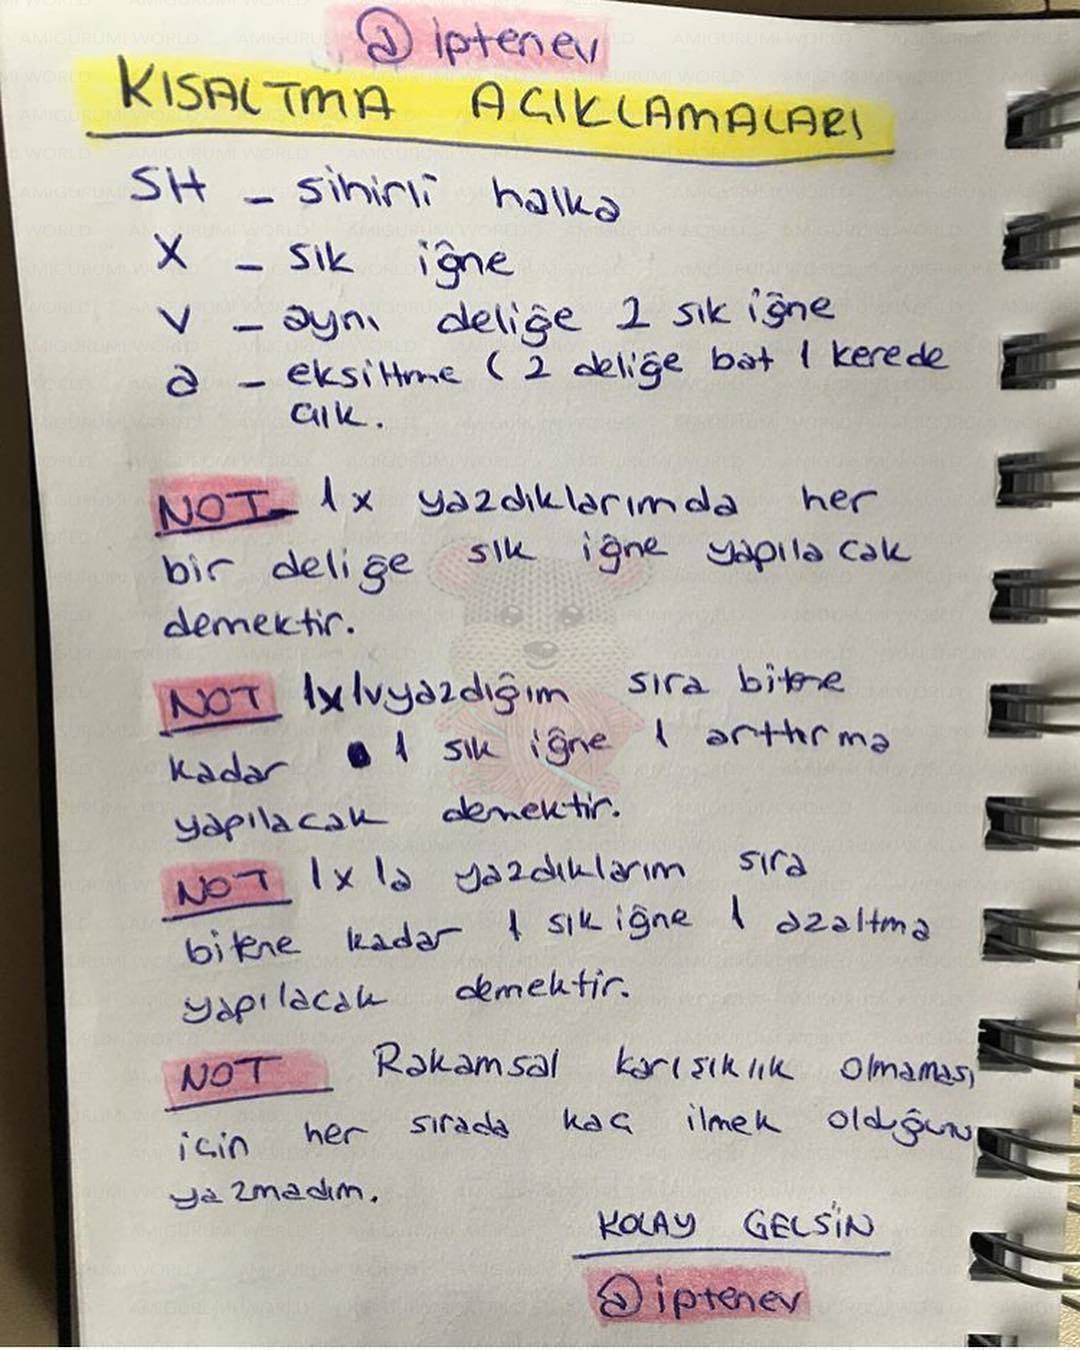 @iptenev
KISALTMA AÇIKLAMALARI
SH - sihirli halka
X - sık iğne
V - aynı deliğe 2 sık iğne
a - eksiltme ( 2 deliğe bat 1 kerede
çık.
NOT 1x yazdıklarımda her
bir deliğe sık iğne yapılacak
demektir.
NOT 1x1v yazdığım sıra bitene
kadar 1 sık iğne 1 arttırma
yapılacak demektir.
NOT 1x1a yazdıklarım sıra
bitene kadar 1 sık iğne 1 azaltma
yapılacak demektir.
NOT Rakamsal karışıklık olmaması
için her sırada kaç ilmek olduğunu
yazmadım.
KOLAY GELSİN
@iptenev